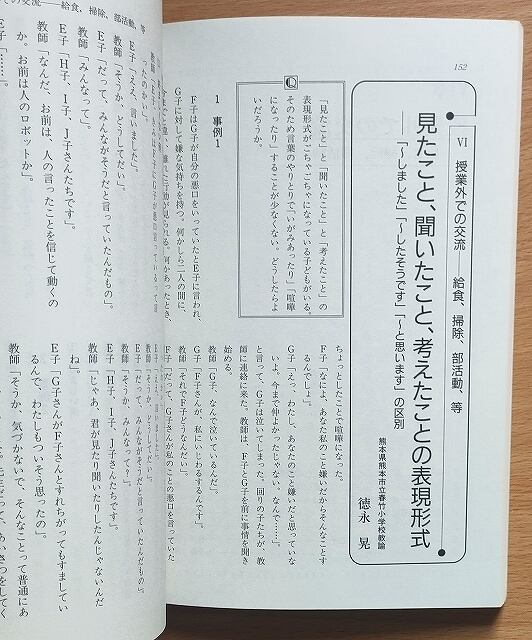 152
Ⅵ 授業外での交流 給食、掃除、部活動、等
見たこと、聞いたこと、考えたことの表現形式
――「〜しました」「〜したそうです」「〜と思います」の区別
熊本県熊本市立春竹小学校教諭
徳永 晃
Q
「見たこと」と「聞いたこと」と「考えたこと」の
表現形式がごちゃごちゃになっている子どもがいる。
そのため言葉のやりとりで「いがみあったり」「喧嘩
になったり」することが少なくない。どうしたらよ
いだろうか。
1 事例1
F子はG子が自分の悪口をいっていたとE子に言われ、
G子に対して嫌な気持ちを持つ。何かしら二人の間に、
ちょっとしたことで喧嘩になった。
F子「なによ、あなた私のこと嫌いだからそんなことす
るんでしょ」。
G子「えっ、わたし、あなたのこと嫌いだと思っていな
いよ、今まで仲よかったじゃない。なんで……」。
と言って、G子は泣いてしまった。回りの子たちが、教
師に連絡に来た。教師は、F子とG子を前に事情を聞き
始める。
教師「G子、なんで泣いているんだ」。
G子「F子さんが、私にいじわるするんです」。
教師「それでF子どうなんだい」。
F子「だって、G子さんが私のことの悪口を言っていた
の交流――給食、掃除、部活動、等
ったのかい」。
E子「ええ、言いました」。
教師「そうか、どうしてだい」。
E子「だって、みんながそうだと言っていたんだもの」。
教師「みんなって」。
E子「H子、I子、J子さんたちです」。
教師「なんだ、お前は、人の言ったことを信じて動くの
か。お前は人のロボットか」。
E子「……」。
教師「じゃあ、君が見たり聞いたりしたんじゃないんだ
ね」。
E子「G子さんがF子さんとすれちがってもすましてい
るんで、わたしもついそう思ったの」。
教師「そうか、気づかないで、そんなことって普通にあ